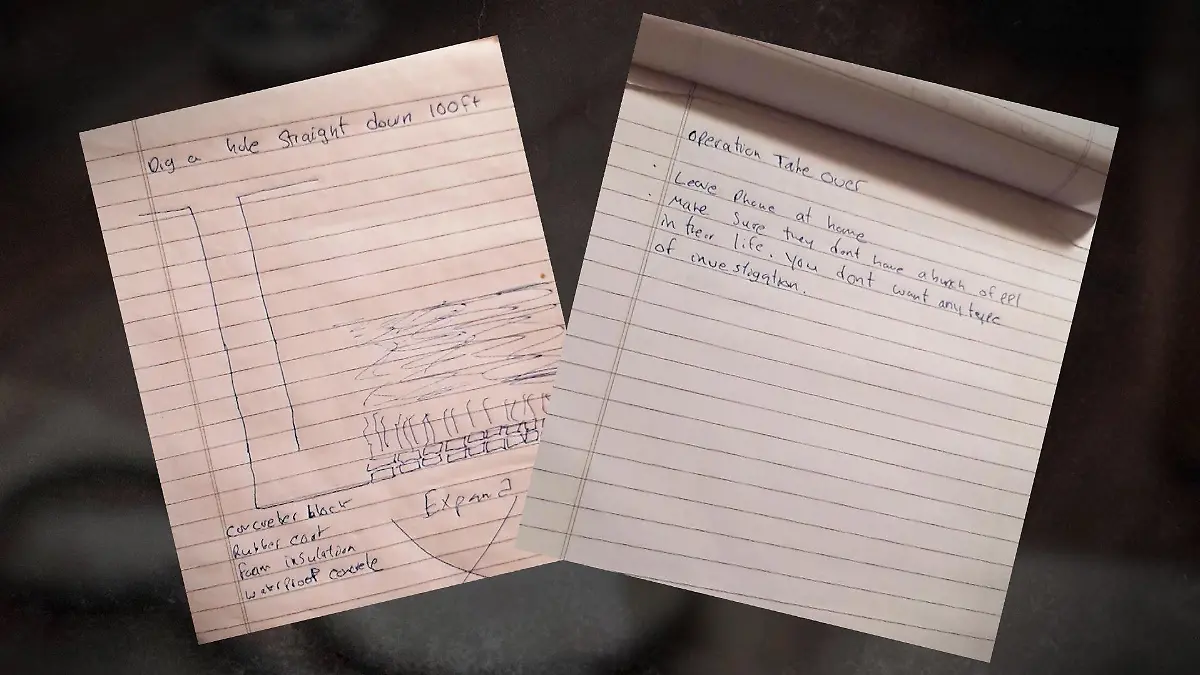 Dig a hole Straight down 100ft
Expand
block
Rubber coat
foam insulation
waterproof concrete
Operation Take Over
· Leave Phone at home
· Make Sure they dont have a bunch of ppl
in their life. You dont want any type
of investigation.